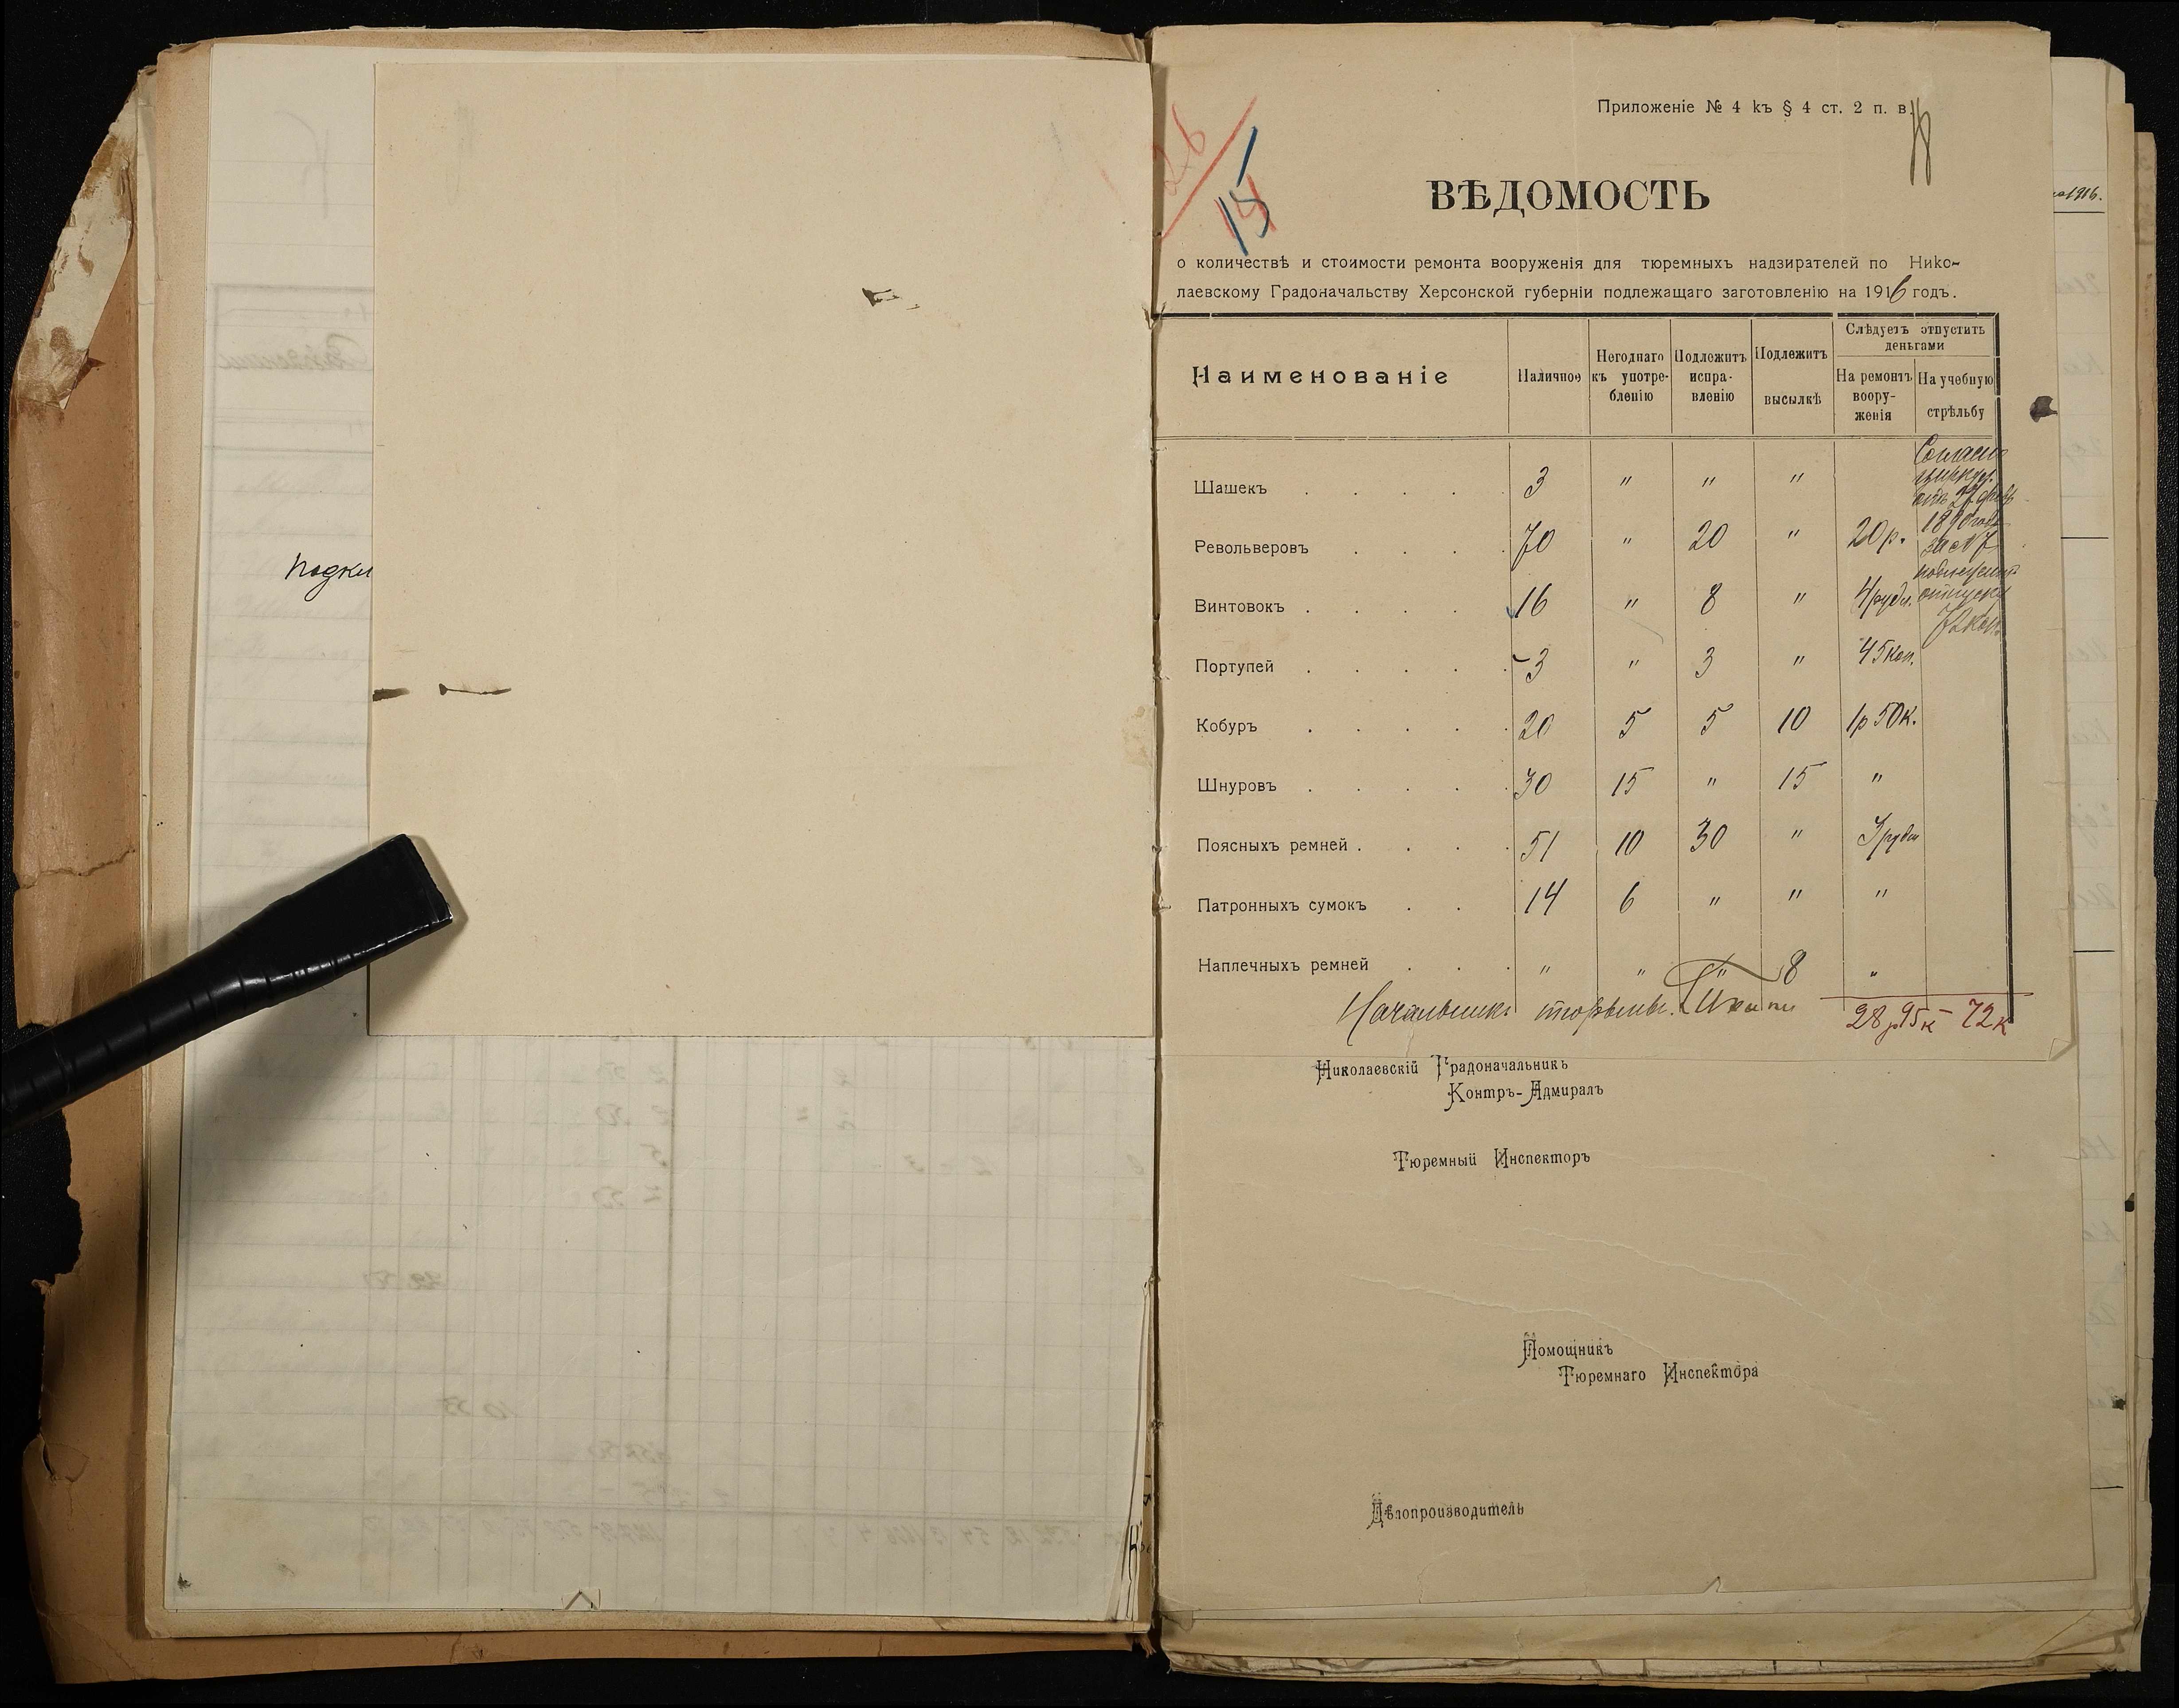 Приложеніе № 4 къ § 4 ст. 2 п. в
18
26
15
ВѢДОМОСТЬ
о количествѣ и стоимости ремонта вооруженія для тюремныхъ надзирателей по Нико-
лаевскому Градоначальству Херсонской губерніи подлежащаго заготовленію на 1916 годъ.
Наименованіе Наличное Негоднаго къ употре- бленію Подлежитъ испра- вленію Подлежитъ высылкѣ Слѣдуетъ отпустить деньгами На ремонтъ воору- женія На учебную стрѣльбу
Шашекъ . . . . . 3 " " "
Револьверовъ . . . . 70 " 20 " 20 р.
Винтовокъ . . . . 16 " 8 " 4 рубл.
Портупей . . . . . 3 " 3 " 45 коп.
Кобуръ . . . . . 20 5 5 10 1р 50к.
Шнуровъ . . . . . 30 15 " 15 "
Поясныхъ ремней . . . . 51 10 30 " 3 рубл
Патронныхъ сумокъ . . 14 6 " " "
Наплечныхъ ремней . . . " " " 8 "
Согласно
циркул.
отъ 27 февр
1890 года
за № 7
подлежитъ
отпуску
72 коп.
Начальникъ тюрьмы
28 р 95 к - 72 к
Николаевскій Градоначальникъ
Контръ-Адмиралъ
Тюремный Инспекторъ
Помощникъ
Тюремнаго Инспектора
Дѣлопроизводитель